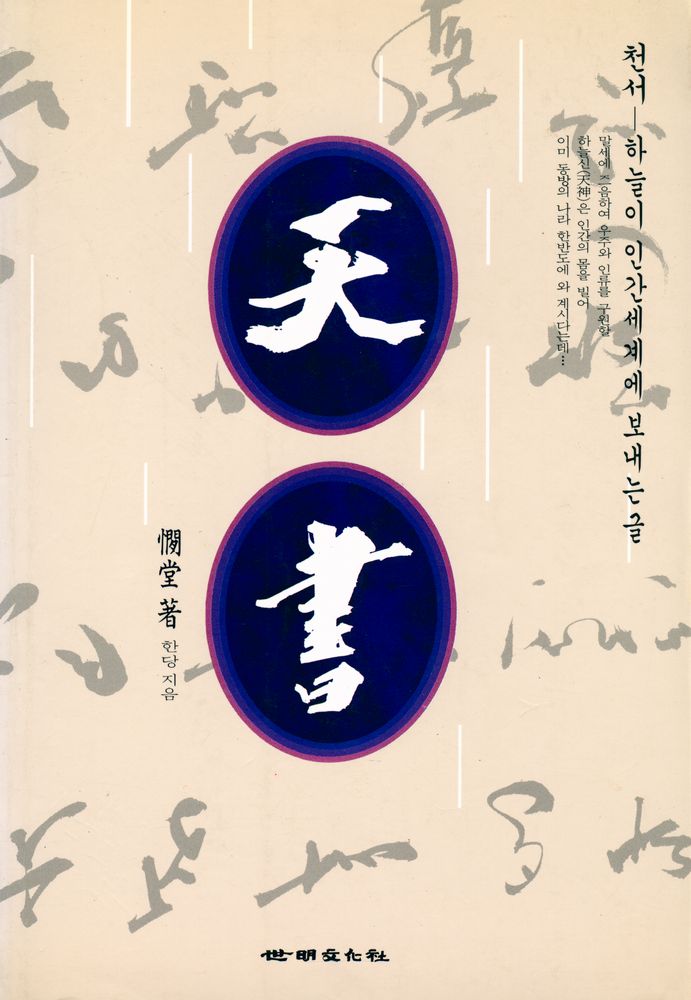 천서─하늘이 인간세계에 보내는 글
말세에 즈음하여 우주와 인류를 구원할
하늘신(天神)은 인간의 몸을 빌어
이미 동방의 나라 한반도에 와 계시다는데…
天
書
憪堂 著
한당 지음
世明文化社